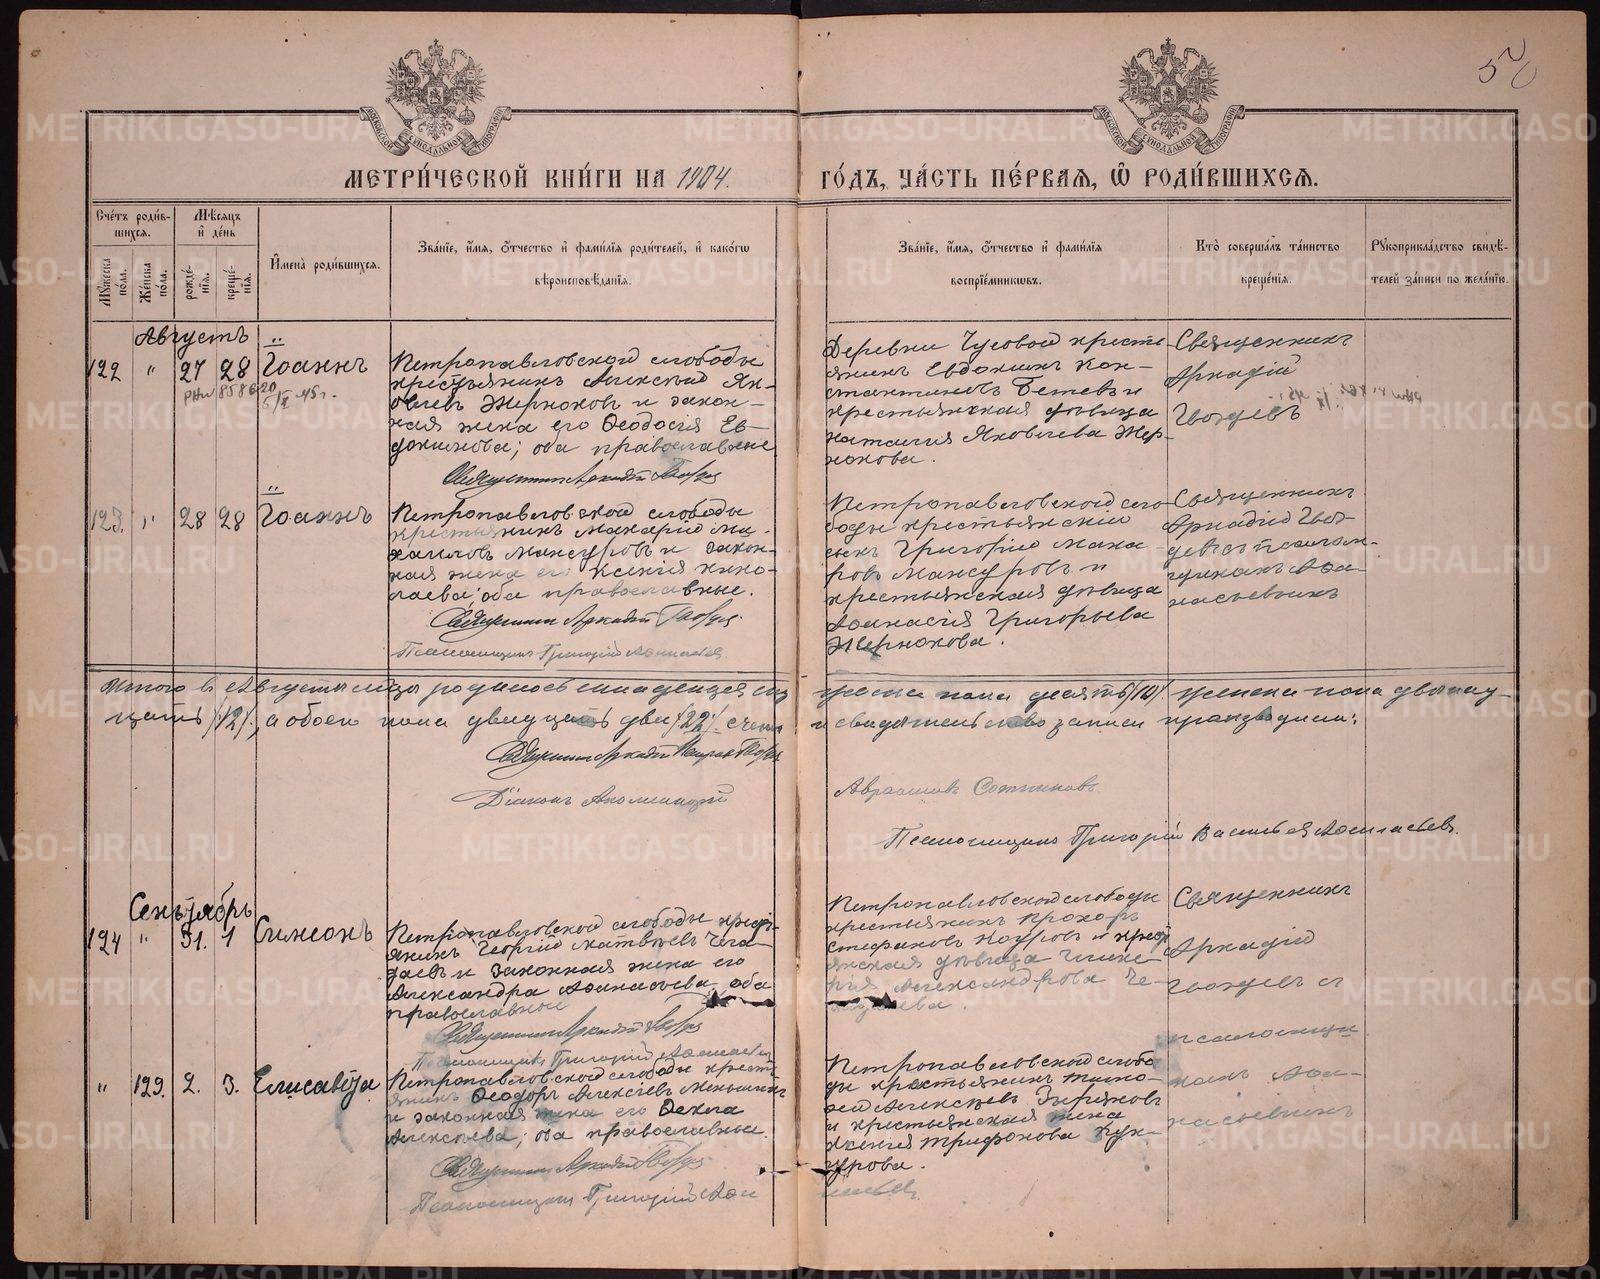 50
МЕТРИ́ЧЕСКОЙ КНИ́ГИ НА 1904.
ГО́ДЪ, ЧА́СТЬ ПЕ́РВАЯ, Ѿ РОДИ́ВШИХСЯ.
Сче́тъ роди́в-
шихся.
Мѣ́сяцъ
и де́нь
Му́жеска по́ла.
Же́нска по́ла.
рожде́-
нія.
креще́-
нія.
Имена̀ роди́вшихся.
Зва́ніе, и́мя, о́тчество и фами́лія роди́телей, и како́гѡ
вѣроисповѣ́данія.
Зва́ніе, и́мя, о́тчество и фами́лія
воспріе́мниковъ.
Кто̀ соверша́лъ та́инство
креще́нія.
Рукоприкла́дство свидѣ́-
телей за́писи по жела́нію.
Августъ
122 " 27 28 Іоаннъ
Петропавловской слободы
крестьянинъ Алексѣй Як-
овлевъ Жернюковъ и закон-
ная жена его Ѳеодосія Ев-
докимова; оба православные
Священникъ Аркадій Гвоздевъ
Деревни Чусовой кресть-
янинъ Евдокимъ Кон-
стантиновъ и
крестьянская дѣвица
Наталія Яковлева Жер-
нокова.
Священникъ
Аркадій
Гвоздевъ
123. " 28 28 Іоаннъ
Петропавловской слободы
крестьянинъ Макарій Ми-
хаиловъ Мансуровъ и закон-
ная жена его Ксенія Нико-
лаева; оба православные.
Священникъ Аркадій Гвоздевъ
Псаломщикъ Григорій Аѳанасьевъ
Петропавловской сло-
боды крестьянскій
сынъ Григорій Мака
ровъ Мансуровъ и
крестьянская дѣвица
Аѳанасія Григорьева
Жернокова.
Священникъ
Аркадій Гвоз-
девъ съ псалом-
щикомъ Аѳа-
насьевымъ
Итого въ Августѣ мѣсяцѣ родилось младенцевъ муж
ческа пола десять /10/. женска пола двѣнад-
цать /12/, а обоего пола двадцать два /22/. счетъ
и свидѣтельство записи производили:
Священникъ Аркадій Гвоздевъ
Діаконъ
Авраамовъ Сотниковъ
Псаломщикъ Григорій Васильевъ Аѳанасьевъ.
Сентябрь
124 " 31. 1 Симеонъ
Петропавловской слободы кресть-
янинъ Георгій Матвѣевъ Чега-
даевъ и законная жена его
Александра Аѳанасьева, оба
православные
Священникъ Аркадій Гвоздевъ
Псаломщикъ Григорій Аѳанасьевъ
Петропавловской слободы
крестьянинъ Прохоръ
Стефановъ и крест
янская дѣвица Глике-
рія Александрова Че-
гадаева.
Священникъ
Аркадій
Гвоздевъ съ
псаломщи-
комъ Аѳа-
насьевымъ
" 129. 2. 3. Елисавета
Петропавловской слободы кресть-
янинъ Ѳеодоръ Алексѣевъ Меньшиковъ
и законная жена его Ѳекла
Алексѣева; оба православные.
Священникъ Аркадій Гвоздевъ
Псаломщикъ Григорій Аѳа
насьевъ
Петропавловской слобо
ды крестьянинъ Тимо-
ѳей Алексѣевъ Зыряновъ
и крестьянская жена
Ксенія Трифонова Кун-
гурова.